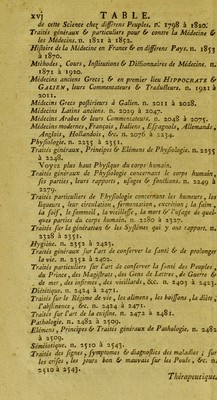 xvj TABLE.
de cette Science chez différens Peuples. n. 1798 à 1820.
Traités généraux & particuliers pour & contre la Médecine &
les Médecins. n. 1821 à 1852.
Histoire de la Médecine en France & en différens Pays. n. 1853
à 1870.
Méthodes, Cours, Institutions & Dictionnaires de Médecine. n.
1871 à 1920.
Médecins anciens Grecs; & en premier lieu HIPPOCRATE &
GALIEN, leurs Commentateurs & Traducteurs. n. 1921 à
2011.
Médecins Grecs postérieurs à Galien. n. 2011 à 2028.
Médecins Latins anciens. n. 2029 à 2047.
Médecins Arabes & leurs Commentateurs. n. 2048 à 2075.
Médecins modernes, François, Italiens, Espagnols, Allemands,
Anglois, Hollandois, &c. n. 2076 à 2234.
Physiologie. n. 2235 à 2351.
Traités généraux, Principes & Elémens de Physiologie. n. 2235
à 2248.
Voyez plus haut Physique du corps humain.
Traités généraux de Physiologie concernant le corps humain,
ses parties, leurs rapports, usages & fonctions. n. 2249 à
2279.
Traités particuliers de Physiologie concernant les humeurs, les
liqueurs, leur circulation, fermentation, excrétion; la faim,
la soif, le sommeil, la vieillesse, la mort & l'usage de quel-
ques parties du corps humain. n. 2280 à 2327.
Traités sur la génération & les Systêmes qui y ont rapport. n.
2328 à 2351.
Hygiène. n. 2352 à 2423.
Traités généraux sur l'art de conserver la santé & de prolonger
la vie. n. 2352 à 2402.
Traités particuliers sur l'art de conserver la santé des Peuples,
du Prince, des Magistrats, des Gens de Lettres, de Guerre &
de mer, des infirmes, des vieillards, &c. n. 2403 à 2423.
Diététique. n. 2424 à 2471.
Traités sur le Régime de vie, les alimens, les boissons, la diète,
l'abstinence, &c. n. 2424 à 2471.
Traités sur l'art de la cuisine. n. 2472 à 2481.
Pathologie. n. 2482 à 2509.
Elémens, Principes & Traités généraux de Pathologie. n. 2482
à 2509.
Séméiotique. n. 2510 à 2543.
Traités des signes, symptomes & diagnostics des maladies; sur
les crises, les jours bon & mauvais sur les Pouls, &c. n.
2510 à 2543.
Thérapeutique.